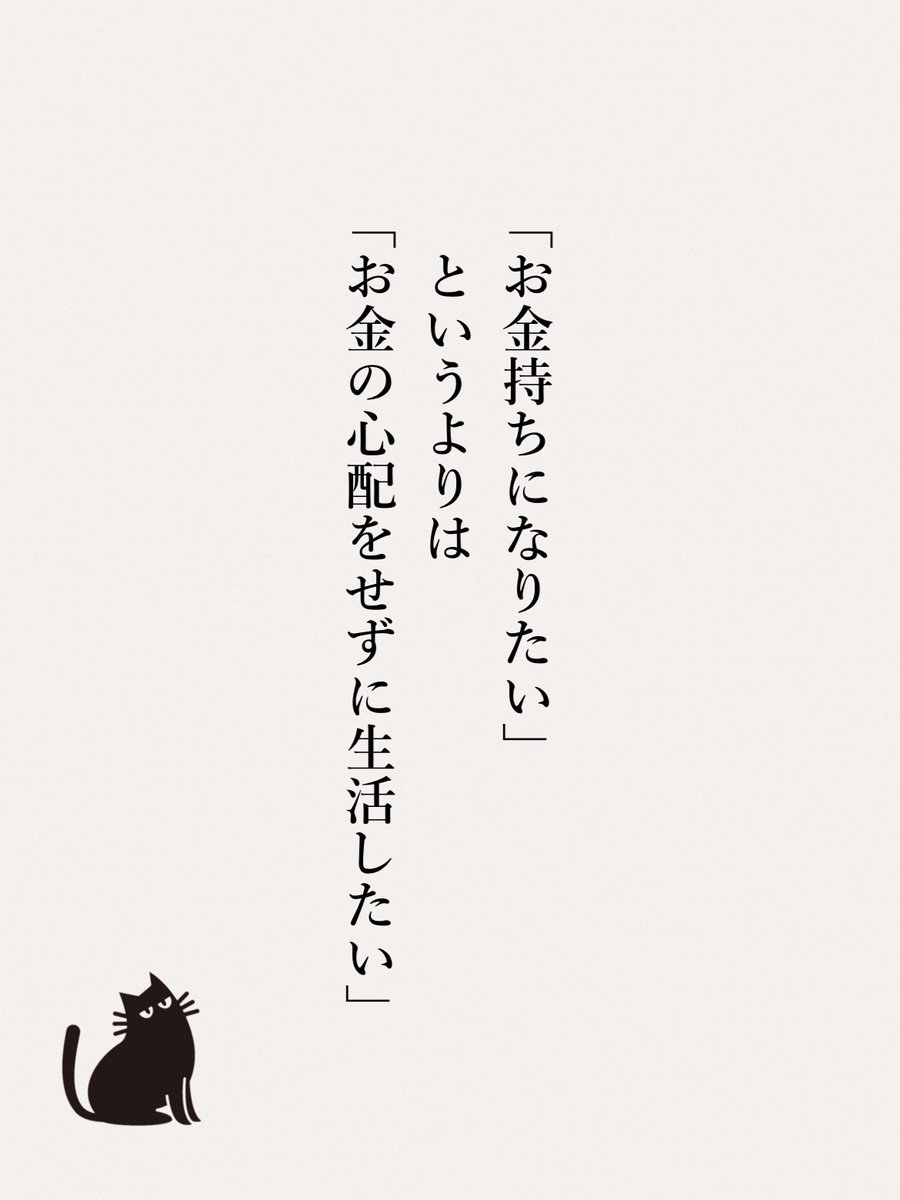 「お金持ちになりたい」
というよりは
「お金の心配をせずに生活したい」